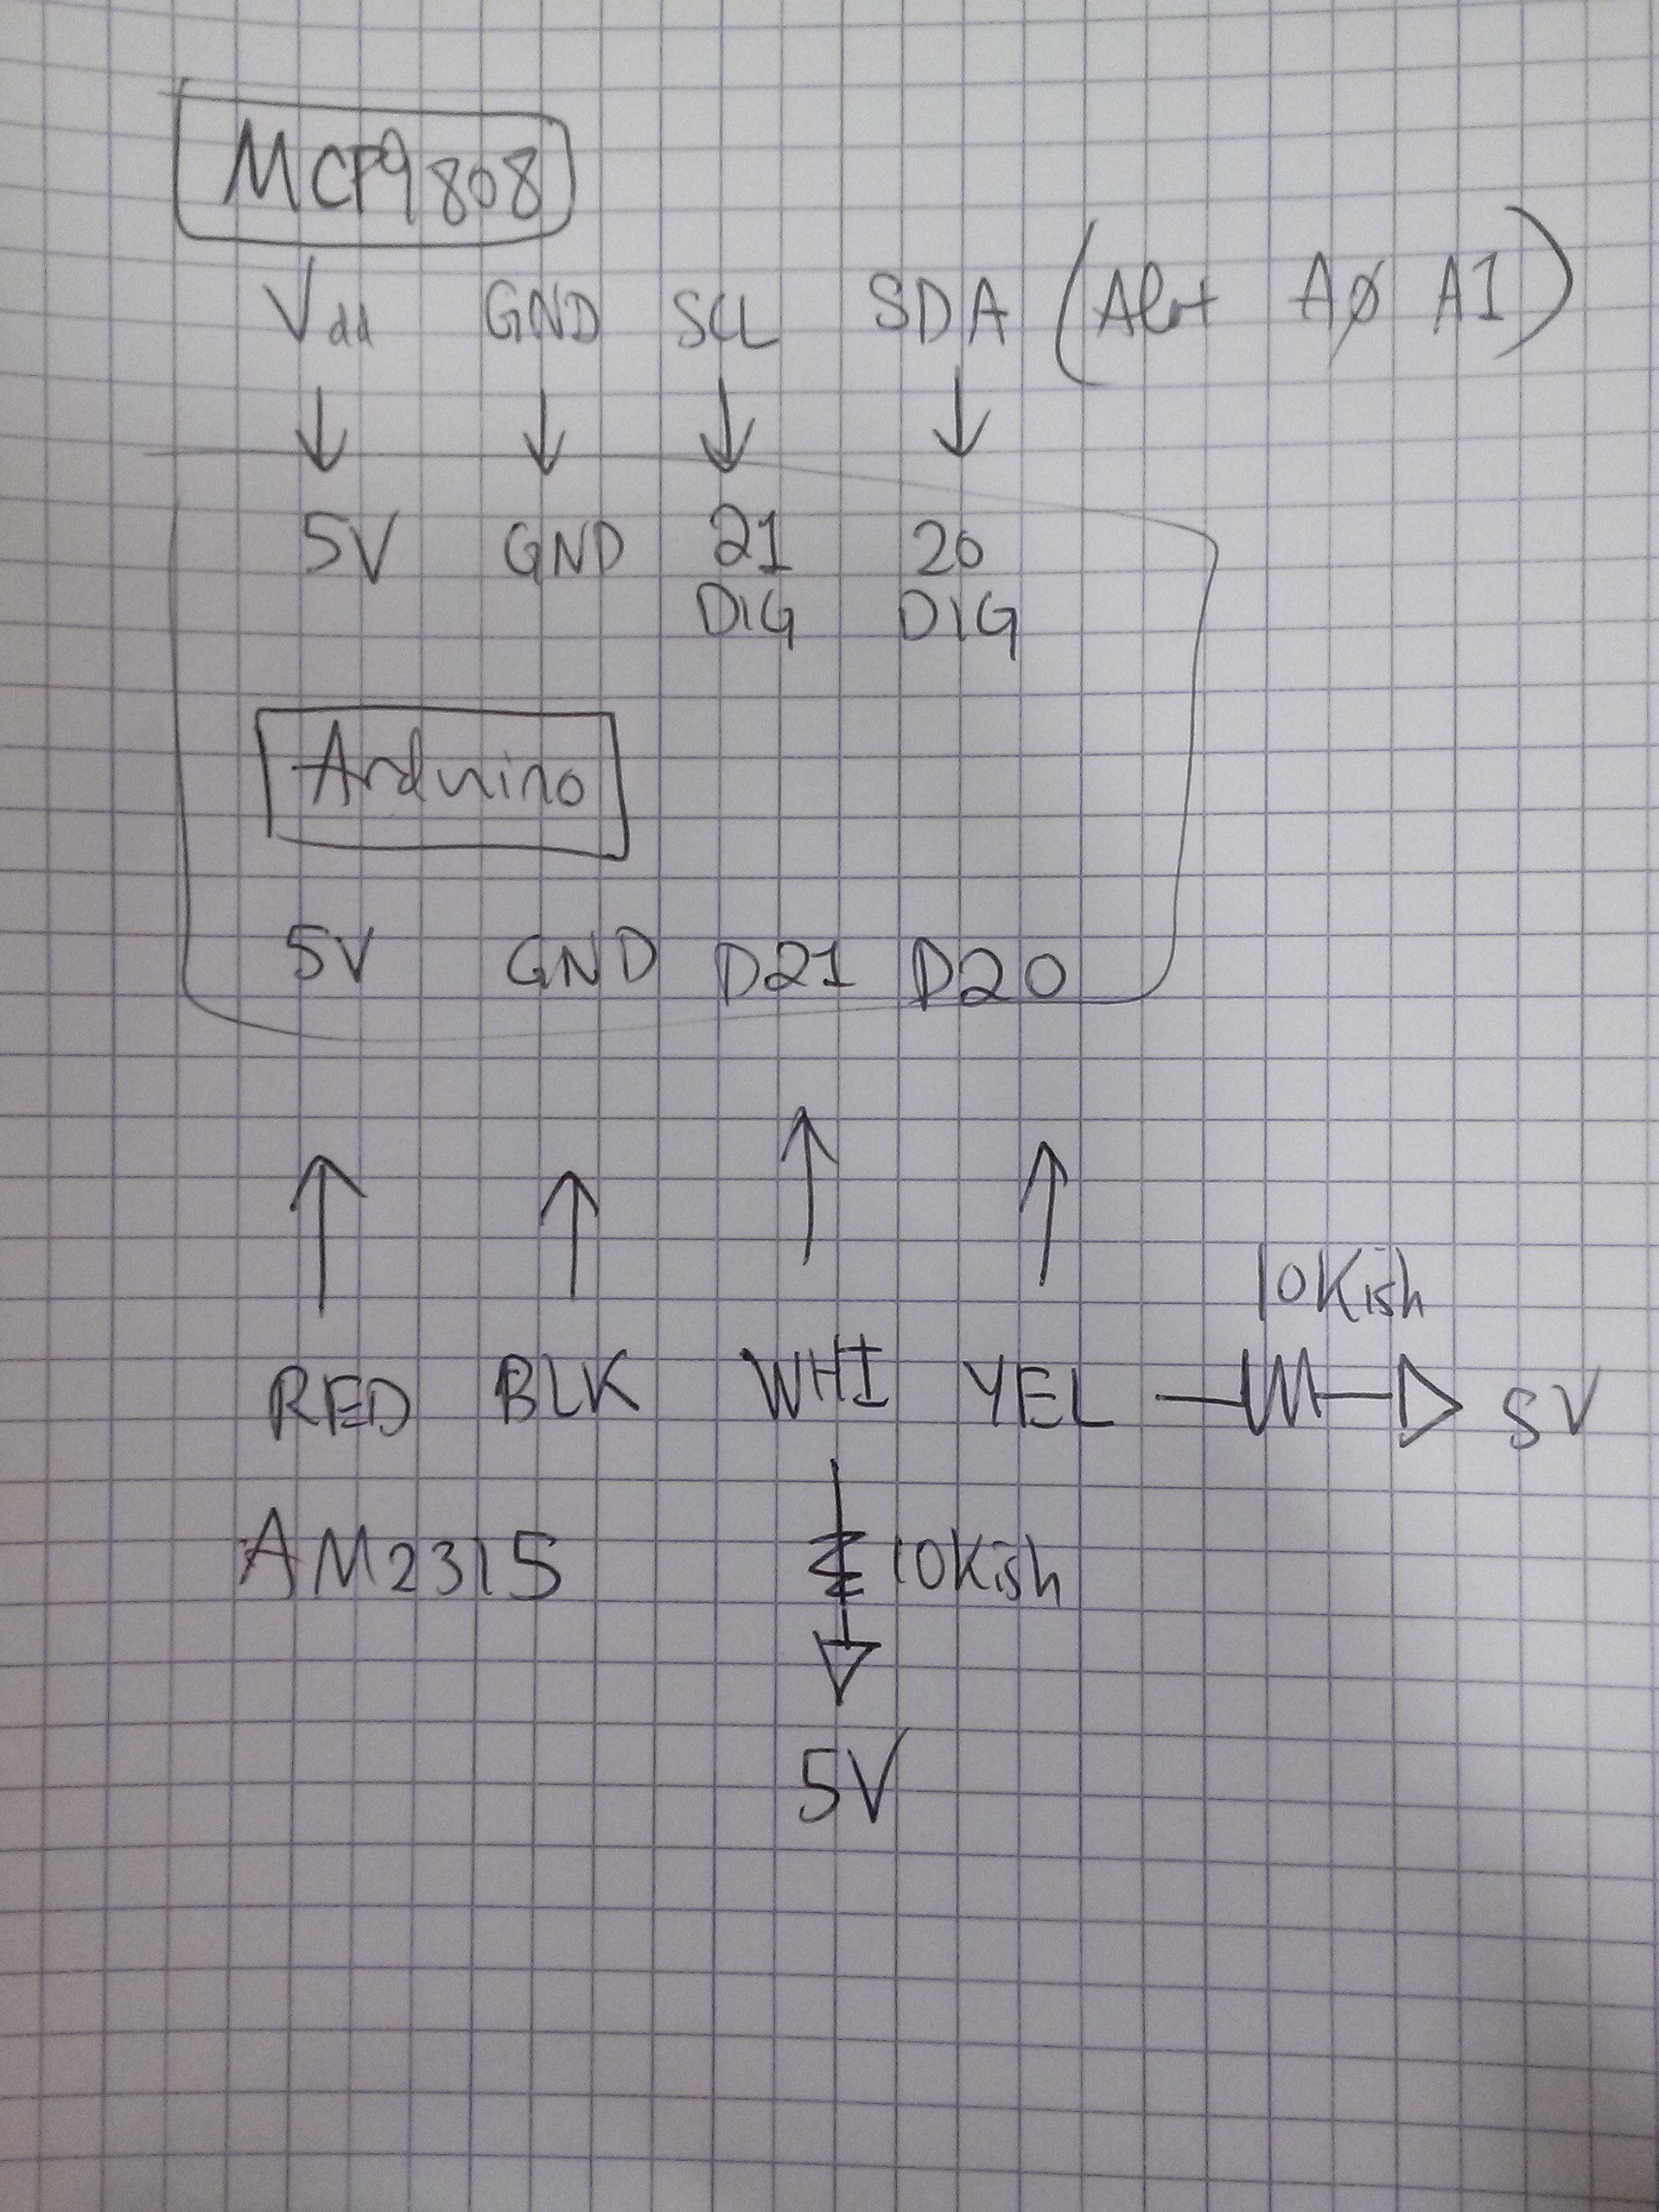 MCP9808
Vdd GND SCL SDA (Alrt AØ A1)
5V GND 21 20
DIG DIG
Arduino
5V GND D21 D20
10Kish
RED BLK WHI YEL 5V
AM2315 10Kish
5V